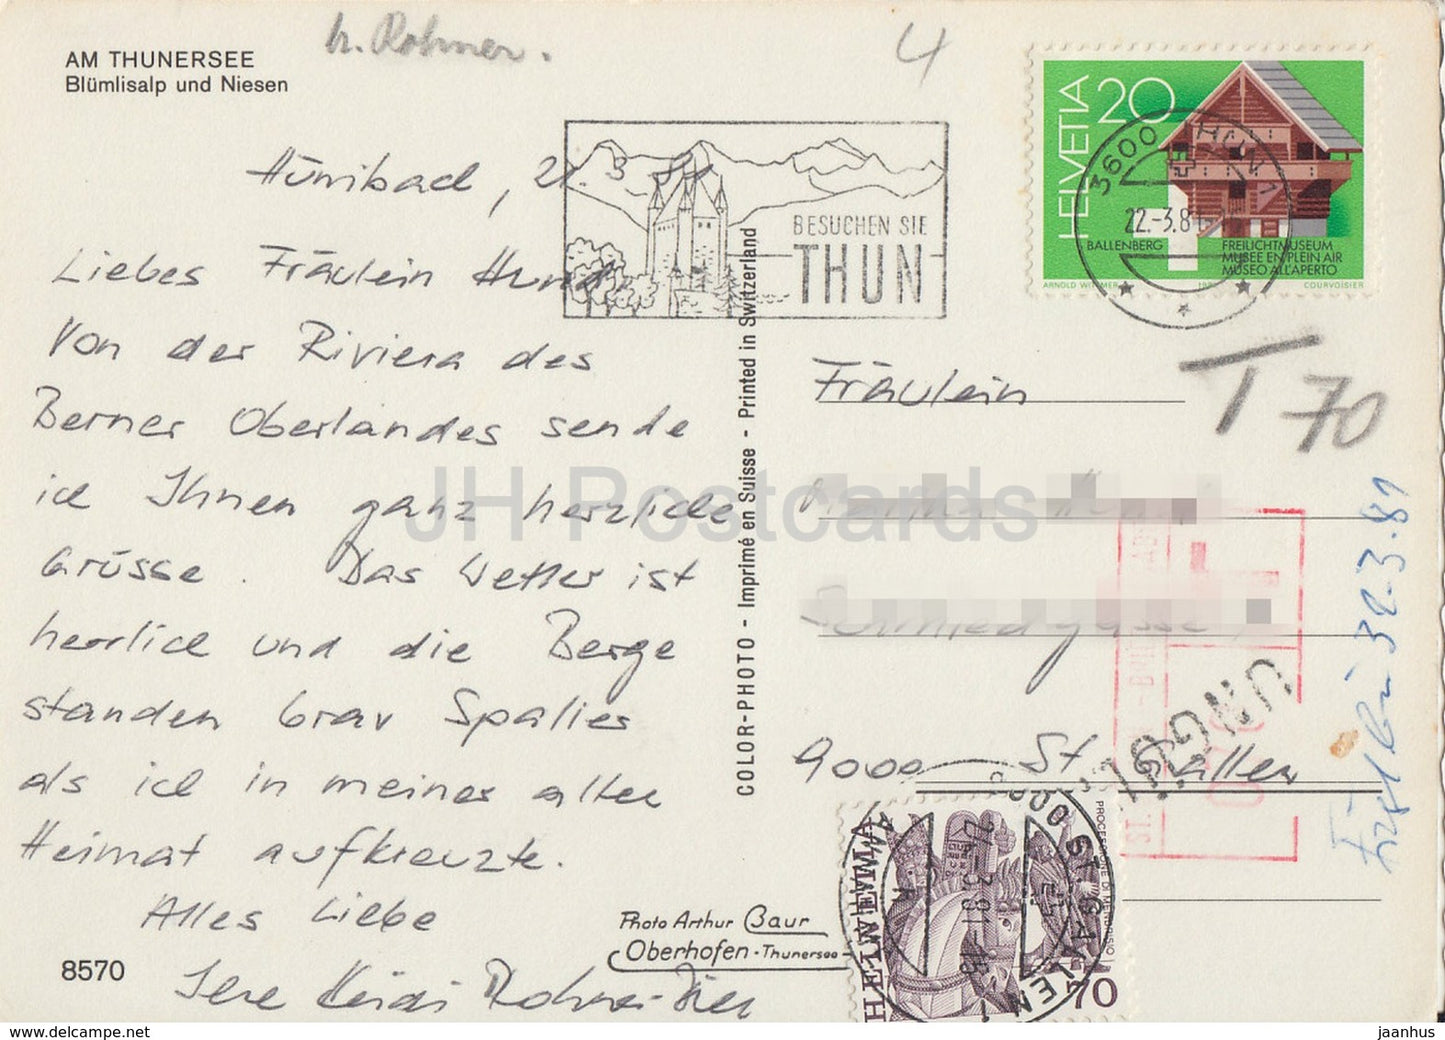 AM THUNERSEE
Blümlisalp und Niesen
h. Rohner.
4
Hünibach, 22. 3. 81
Liebes Fräulein Hund,
Von der Riviera des
Berner Oberlandes sende
ich Ihnen ganz herzliche
Grüsse. Das Wetter ist
herrlich und die Berge
standen brav Spalier
als ich in meiner alten
Heimat aufkreuzte.
Alles Liebe
Ihre Heidi Rohner
8570
Photo Arthur Baur
Oberhofen - Thunersee
COLOR-PHOTO - Imprimé en Suisse - Printed in Switzerland
BESUCHEN SIE
THUN
HELVETIA 20
BALLENBERG
FREILICHTMUSEUM
MUSEE EN PLEIN AIR
MUSEO ALL'APERTO
ARNOLD WITTMER
COURVOISIER
3600 THUN 1
22.-3.81
T 70
Fräulein
9000 St. Gallen
UNGÜL
HELVETIA
70
9000 ST. GALLEN 1
JH Postcards
www.delcampe.net
jaanhus